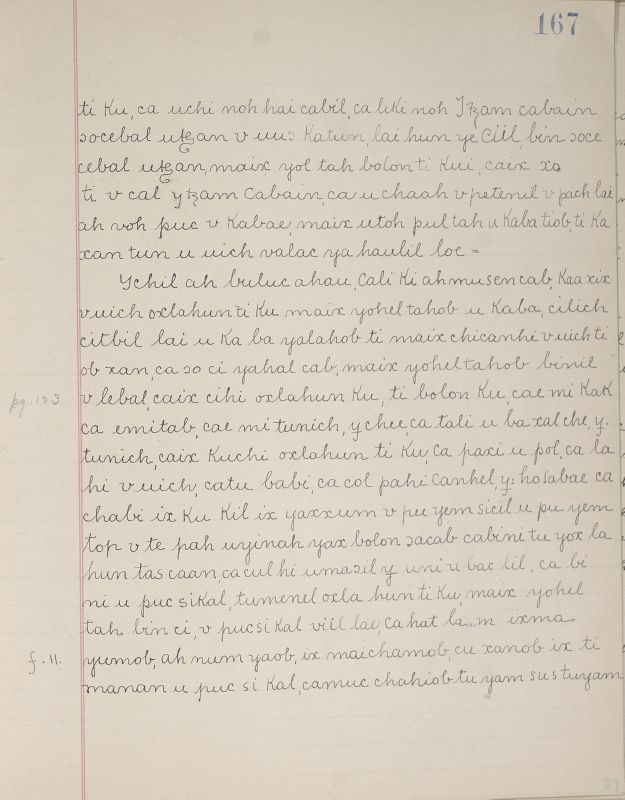 167
ti Ku, ca uchi noh hai cabil, ca liki noh Itzam cabain
ɔocebal utꞩan v uuɔ Katun, lai hun ye Ciil, bin ɔoce
cebal utꞩan, maix yol tah bolon ti Kui, caix xo
ti v cal ytzam Cabain, ca u chaah v petenil v pach lai
ah voh puc v Kabae, maix utoh pul tah u Kaba tiob, ti Ka
xan tun u uich valac ya haulil loe =
Ychil ah buluc ahau, Cali Ki ah musen cab, Kaa xix
vuich oxlahun ti Ku maix yohel tahob u Kaba, cilich
citbil lai u Ka ba yalahob ti maix chicanhi vuich ti
ob xan, ca ɔo ci yahal cab, maix yohel tahob binil
pg. 123
v lebal, caix cihi oxlahun Ku, ti bolon Ku, cae mi KaK
ca emi tab, cae mi tunich, y chee, ca tali u ba xal che, y.
tunich, caix Kuchi oxlahun ti Ku, Ca paxi u pol, ca la
hi v uich, catu babi, ca col pahi Canhel, y: hosabae ca
chabi ix Ku Kil ix yaxxum v pu yem sicil u pu yem
top v te pah uyinah yax bolon ɔacab cabini tu yox la
hun tas caan, ca cul hi umaɔil y uni u bac lil, ca bi
ni u puc sikal, tumenel oxla hun ti Ku, maix yohel
tah bin ci, v pucsi Kal viil lae, ca hat la...m ixma
f. 11.
yumob, ah num yaob, ix maichamob, cu xanob ix ti
manan u puc si Kal, ca muc chahiob tu yam sus tuyam
39